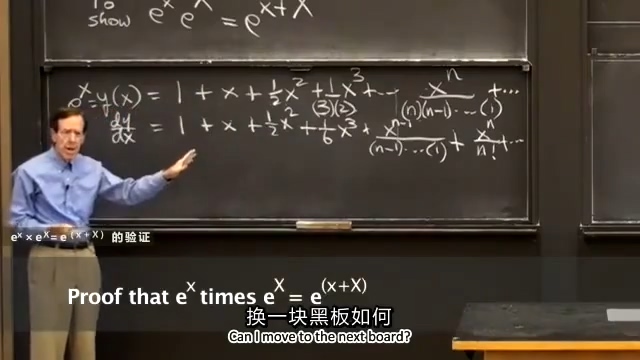 To
show e^x e^X = e^{x+X}
e^x = y(x) = 1 + x + \frac{1}{2}x^2 + \frac{1}{(3)(2)}x^3 + ··· \frac{x^n}{(n)(n-1)···(1)} + ···
\frac{dy}{dx} = 1 + x + \frac{1}{2}x^2 + \frac{1}{6}x^3 + \frac{x^{n-1}}{(n-1)···(1)} + \frac{x^n}{n!} + ···
e^x × e^X = e^(x+X) 的验证
Proof that e^x times e^X = e^(x+X)
换一块黑板如何
Can I move to the next board?